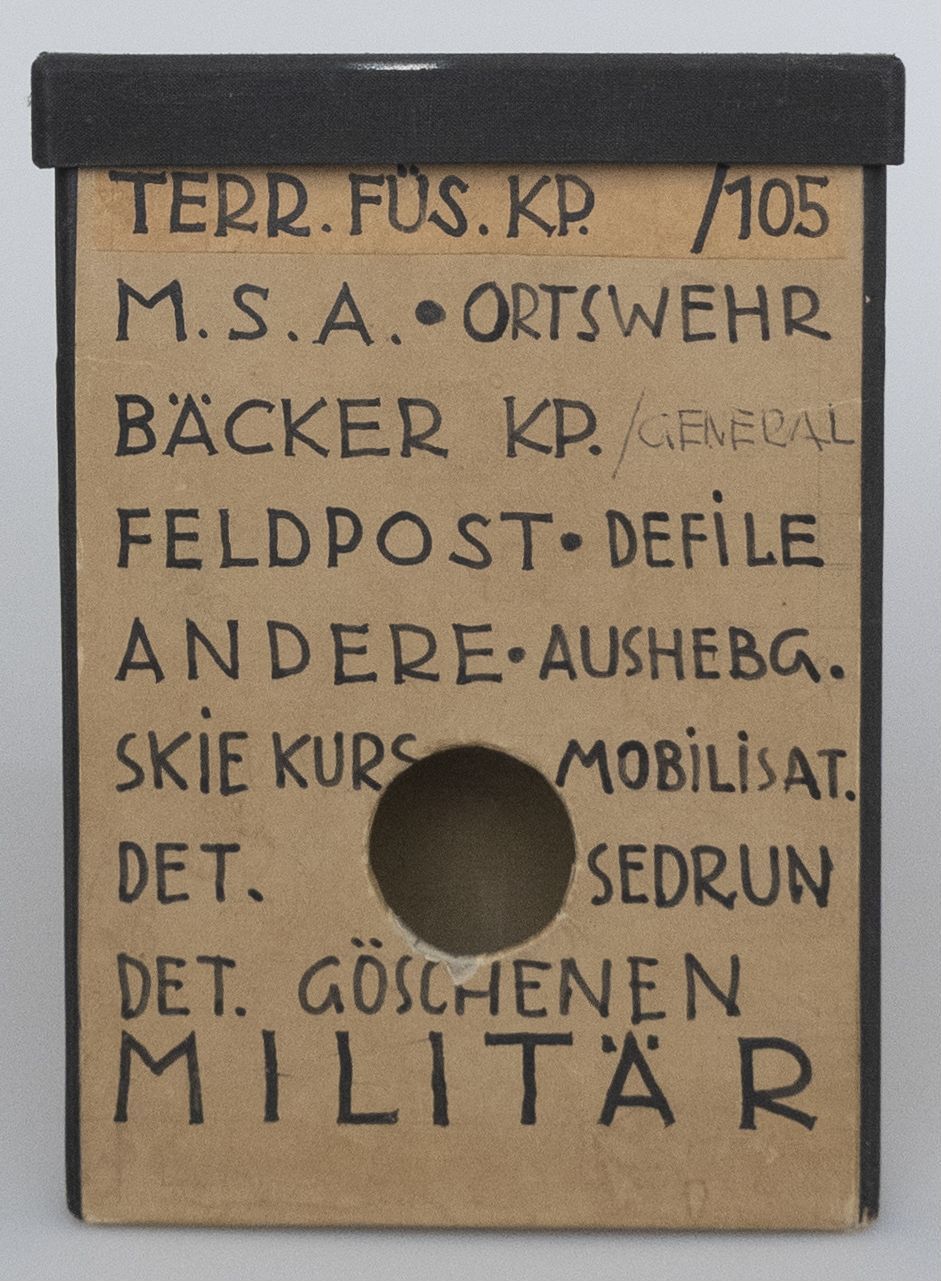 TERR. FÜS. KP. /105
M.S.A. • ORTSWEHR
BÄCKER KP. /GENERAL
FELDPOST • DEFILE
ANDERE • AUSHEBG.
SKIE KURS MOBILISAT.
DET. SEDRUN
DET. GÖSCHENEN
MILITÄR